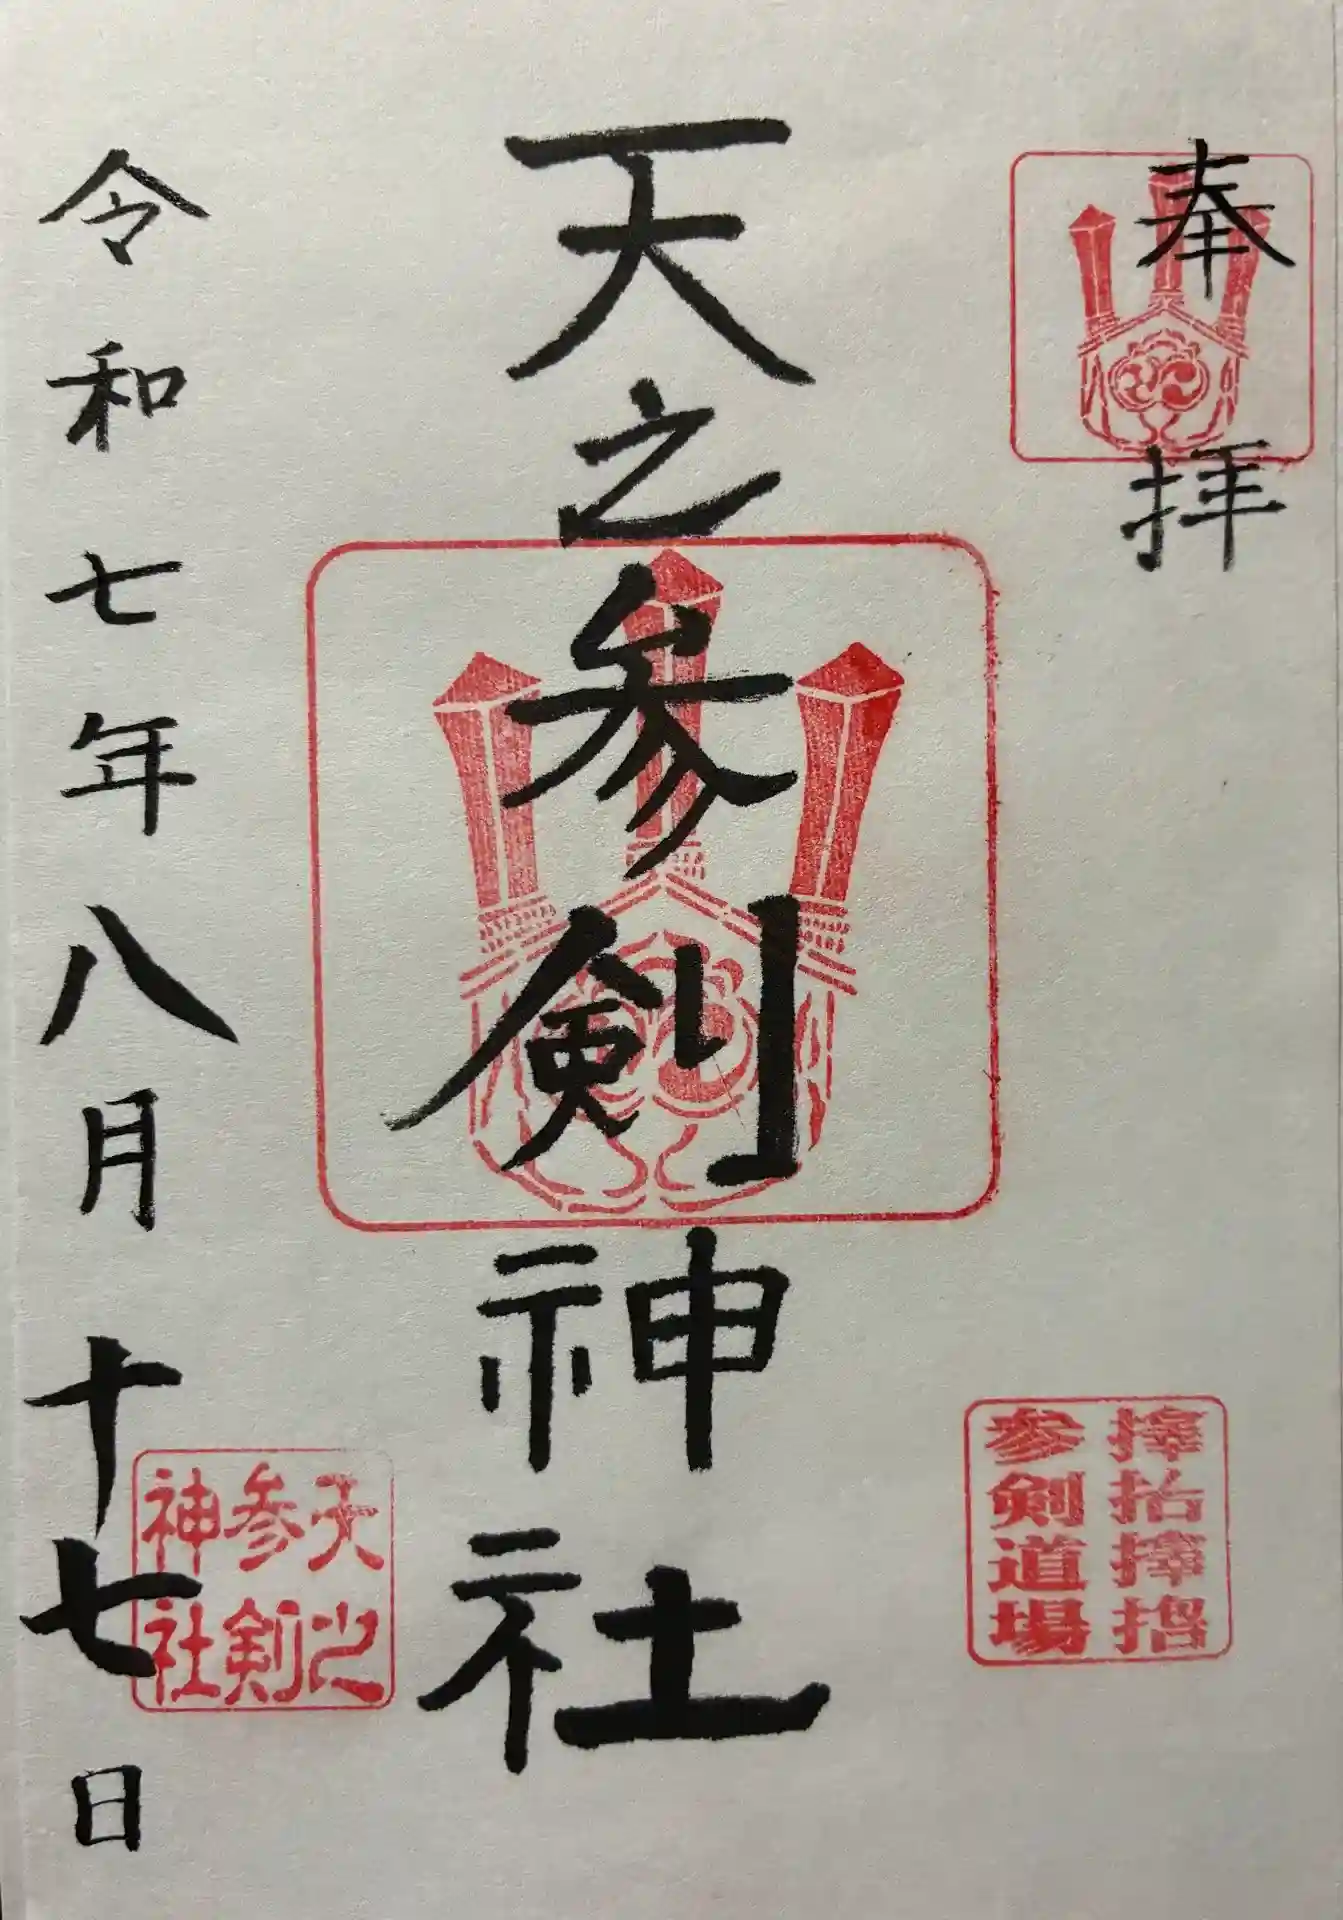 奉拝
参剣道場
天之参剣神社
令和七年八月十七日
天之
参剣
神社